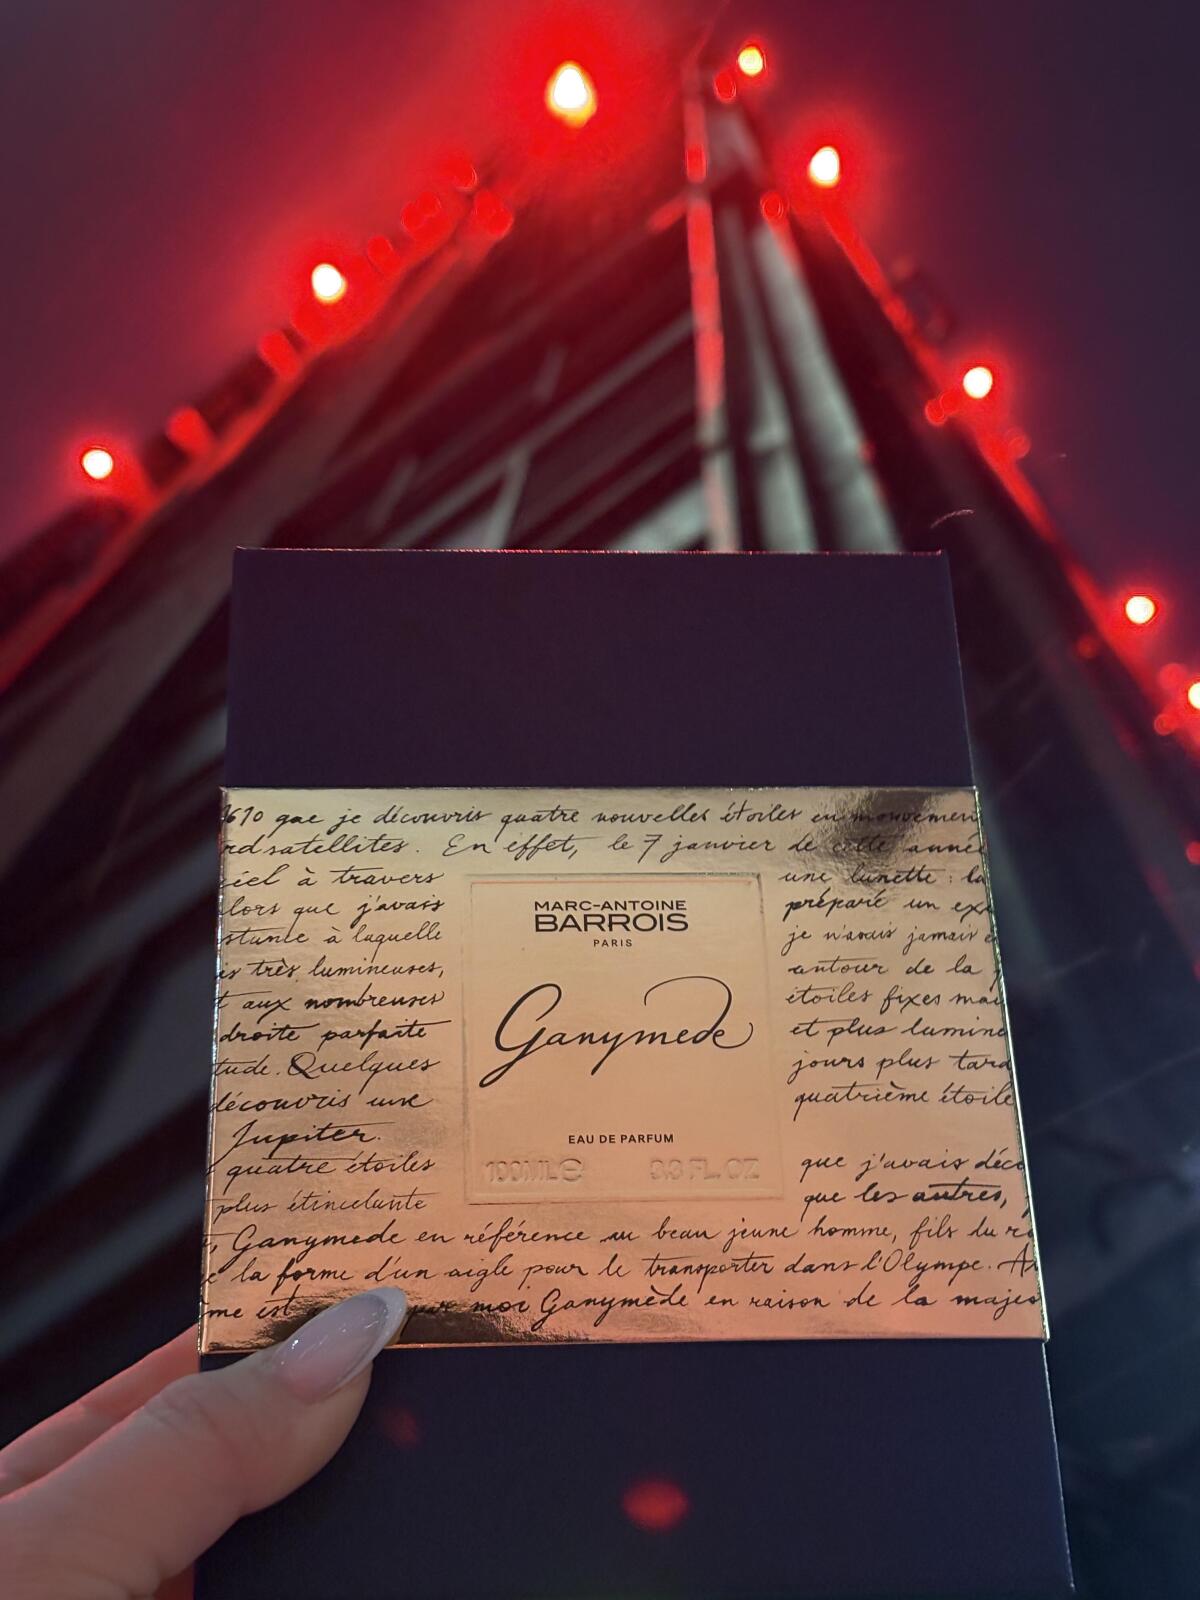 1610 que je découvris quatre nouvelles étoiles en mouvemen
rd satellites. En effet, le 7 janvier de cette année
ciel à travers
lors que j'avais
stance à laquelle
is très lumineuses,
t aux nombreuses
droite parfaite
tude. Quelques
découvris une
Jupiter.
quatre étoiles
plus étincelante
MARC-ANTOINE
BARROIS
PARIS
Ganymede
EAU DE PARFUM
100ML ℮ 3.3 FL. OZ
une lunette : la
préparé un exc
je n'avais jamais
autour de la
étoiles fixes mai
et plus lumine
jours plus tard
quatrième étoile
que j'avais déco
que les autres,
Ganymede en référence au beau jeune homme, fils du ro
e la forme d'un aigle pour le transporter dans l'Olympe.
me est par moi Ganymède en raison de la majes